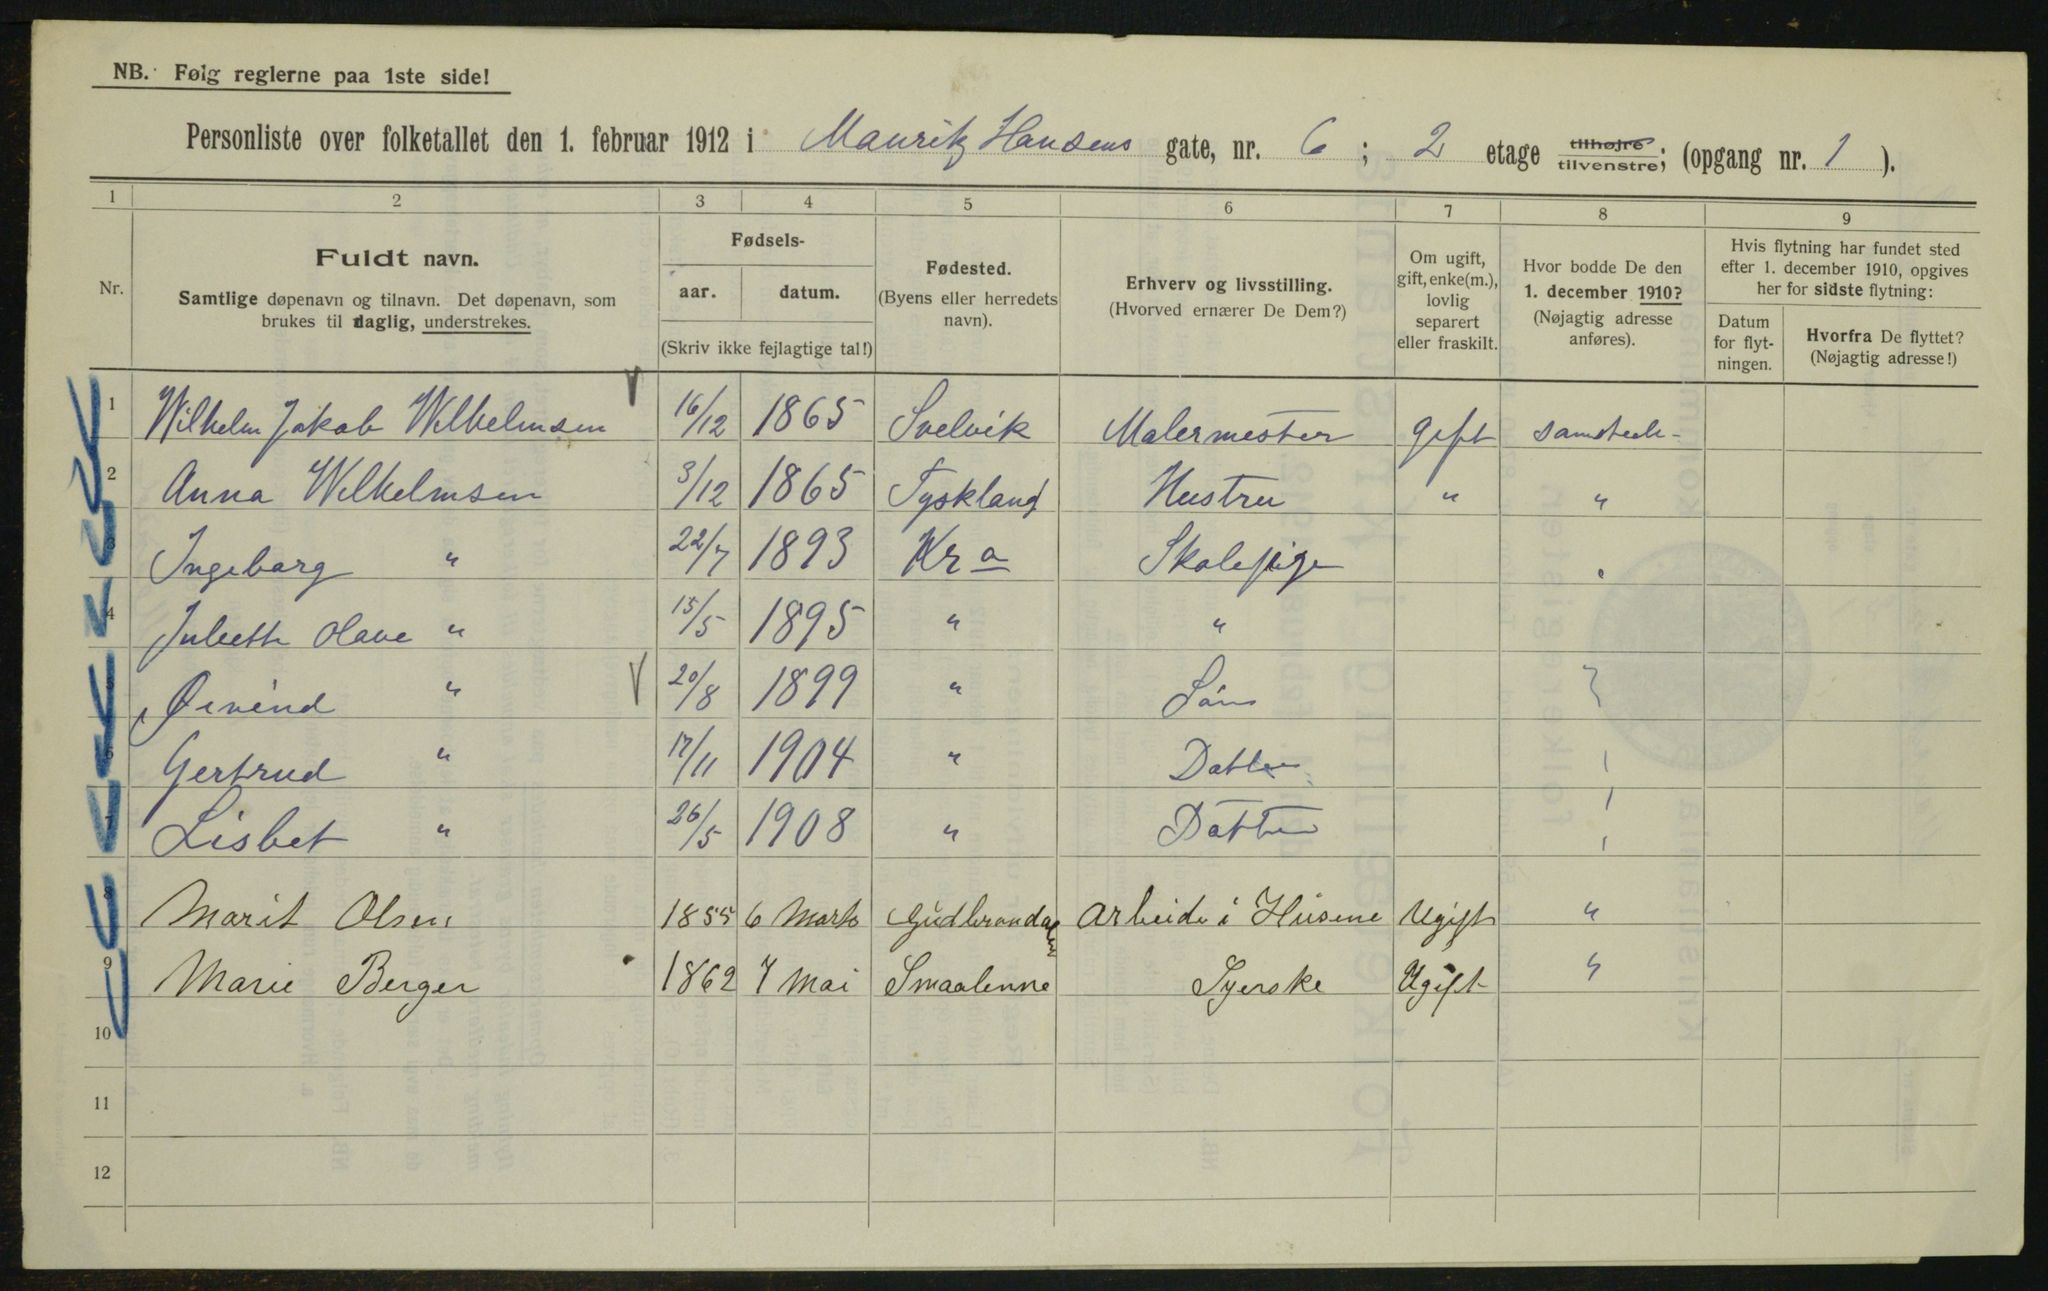 NB. Følg reglerne paa 1ste side!
Personliste over folketallet den 1. februar 1912 i Mauritz Hansens gate, nr. 6 ; 2 etage tilhøjre tilvenstre; (opgang nr. 1 ).
1 2 3 4 5 6 7 8 9
Nr.
Fuldt navn.
Samtlige døpenavn og tilnavn. Det døpenavn, som
brukes til daglig, understrekes.
Fødsels-
aar. datum.
(Skriv ikke fejlagtige tal!)
Fødested.
(Byens eller herredets
navn).
Erhverv og livsstilling.
(Hvorved ernærer De Dem?)
Om ugift,
gift, enke(m.),
lovlig
separert
eller fraskilt.
Hvor bodde De den
1. december 1910?
(Nøjagtig adresse
anføres).
Hvis flytning har fundet sted
efter 1. december 1910, opgives
her for sidste flytning:
Datum
for flyt-
ningen.
Hvorfra De flyttet?
(Nøjagtig adresse!)
1 Wilhelm Jakob Wilhelmsen 16/12 1865 Svelvik Malermester gift samstede
2 Anna Wilhelmsen 3/12 1865 Tyskland Hustru " "
3 Ingeborg " 22/7 1893 Kra Skolepige
4 Juliette Olave " 15/5 1895 " "
5 Øivind " 20/8 1899 " Søn
6 Gertrud " 17/11 1904 " Datter
7 Lisbet " 26/5 1908 " Datter
8 Marit Olsen 1855 6 Marts Gudbrandalen Arbeide i Husene Ugift "
9 Marie Berger 1862 7 Mai Smaalenne Syerske Ugift "
10
11
12